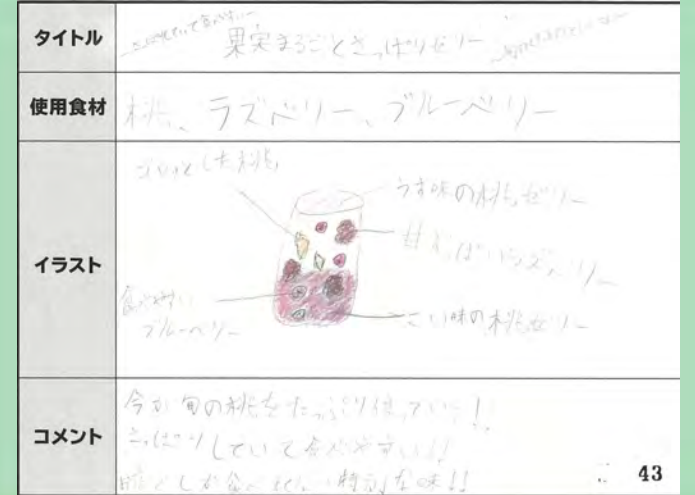 タイトル
果実まるごとさっぱりゼリー
使用食材
桃、ラズベリー、ブルーベリー
イラスト
ゴロッとした桃
うす味の桃ゼリー
甘ずっぱいラズベリー
食べやすい
ブルーベリー
こい味の桃ゼリー
コメント
今が旬の桃をたっぷり使っている!
さっぱりしていて食べやすい!!
しか食べれない特別な味!!
43